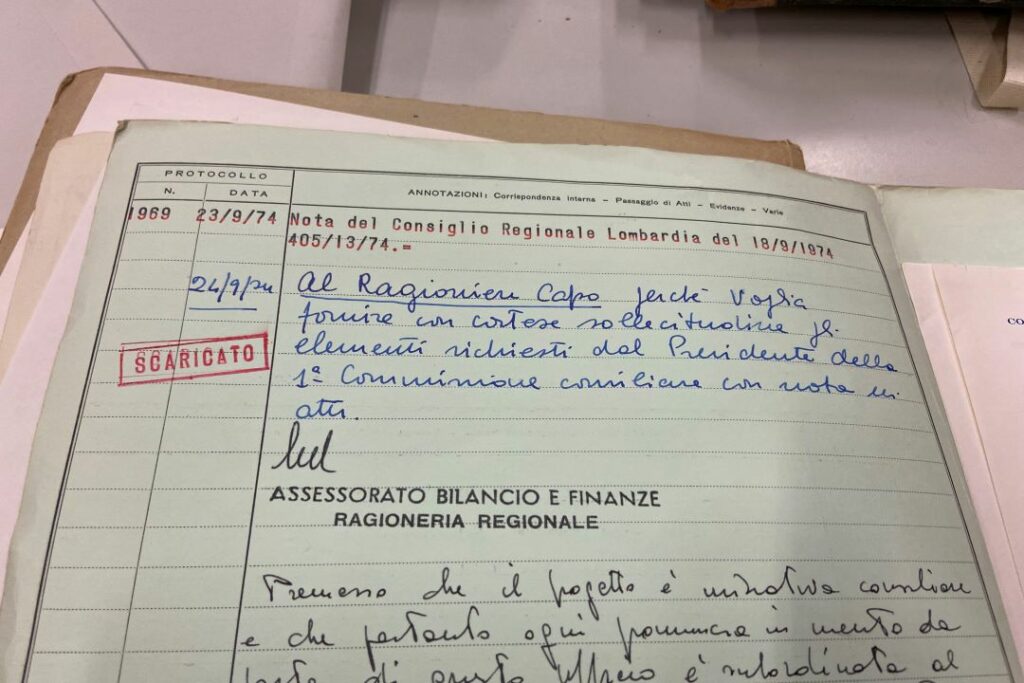 PROTOCOLLO
N. DATA
ANNOTAZIONI: Corrispondenza interna – Passaggio di Atti – Evidenze – Varie
1969 23/9/74 Nota del Consiglio Regionale Lombardia del 18/9/1974
405/13/74.=
24/9/74 Al Ragioniere Capo perché voglia
fornire con cortese sollecitudine gli
elementi richiesti dal Presidente della
1ª Commissione consiliare con nota in
atti.
SCARICATO
ASSESSORATO BILANCIO E FINANZE
RAGIONERIA REGIONALE
Premesso che il progetto è iniziativa consiliare
e che pertanto ogni pronuncia in merito da
parte di questo Ufficio è subordinata al
CO